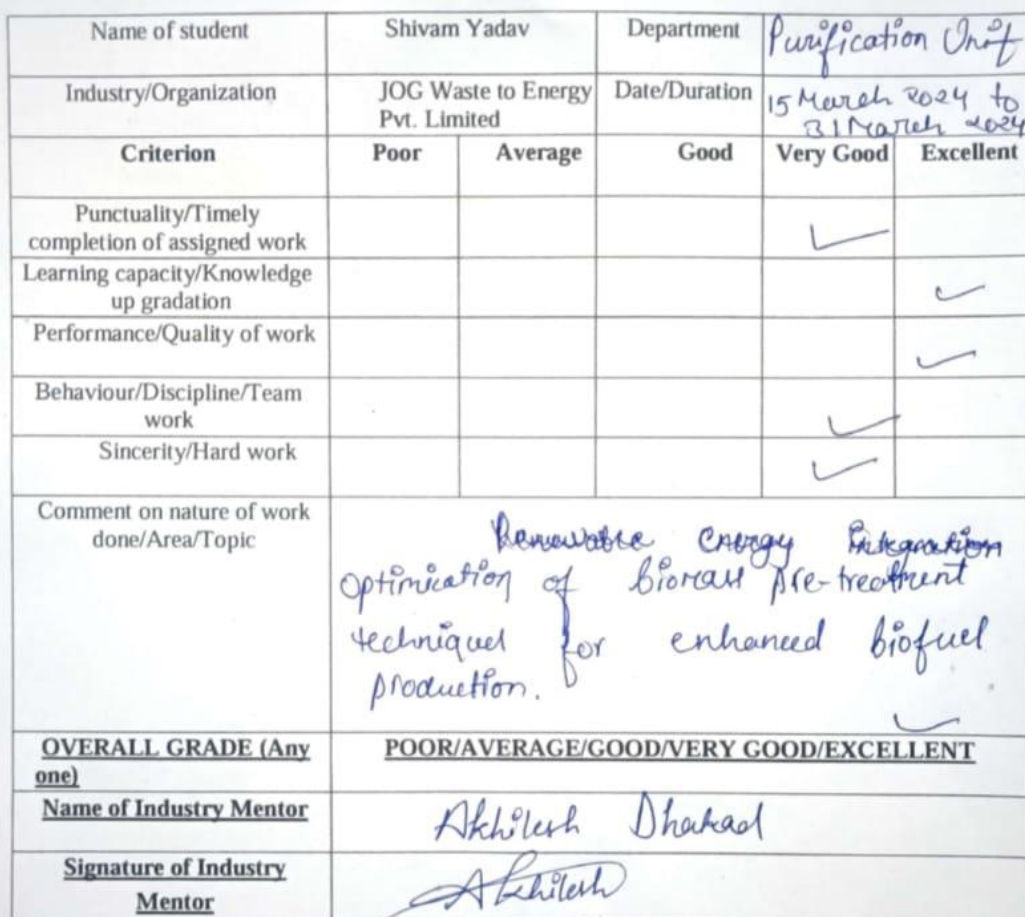 Name of student Shivam Yadav Department Purification Unit
Industry/Organization JOG Waste to Energy Date/Duration 15 March 2024 to
Pvt. Limited 31 March 2024
Criterion Poor Average Good Very Good Excellent
Punctuality/Timely
completion of assigned work
Learning capacity/Knowledge
up gradation
Performance/Quality of work
Behaviour/Discipline/Team
work
Sincerity/Hard work
Comment on nature of work
done/Area/Topic
Renewable energy Integration
Optimication of biomass pre-treatment
techniques for enhanced biofuel
production.
OVERALL GRADE (Any
one)
POOR/AVERAGE/GOOD/VERY GOOD/EXCELLENT
Name of Industry Mentor Akhilesh Dhakad
Signature of Industry
Mentor
Akhilesh